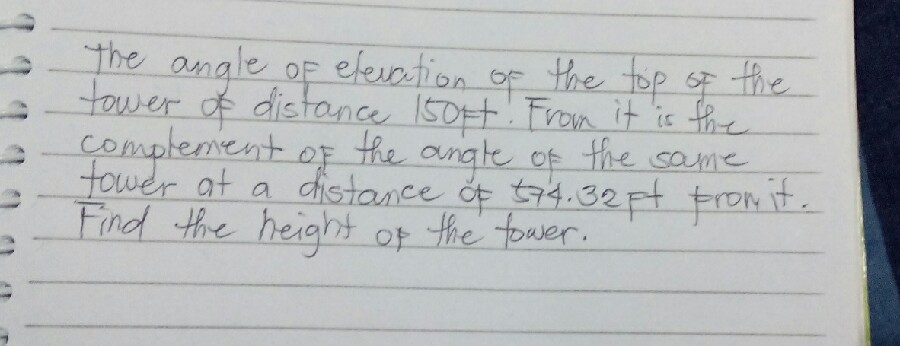 The angle of elevation of the top of the
tower of distance 150ft. From it is the
complement of the angle of the same
tower at a distance of 574.32 ft from it.
Find the height of the tower.